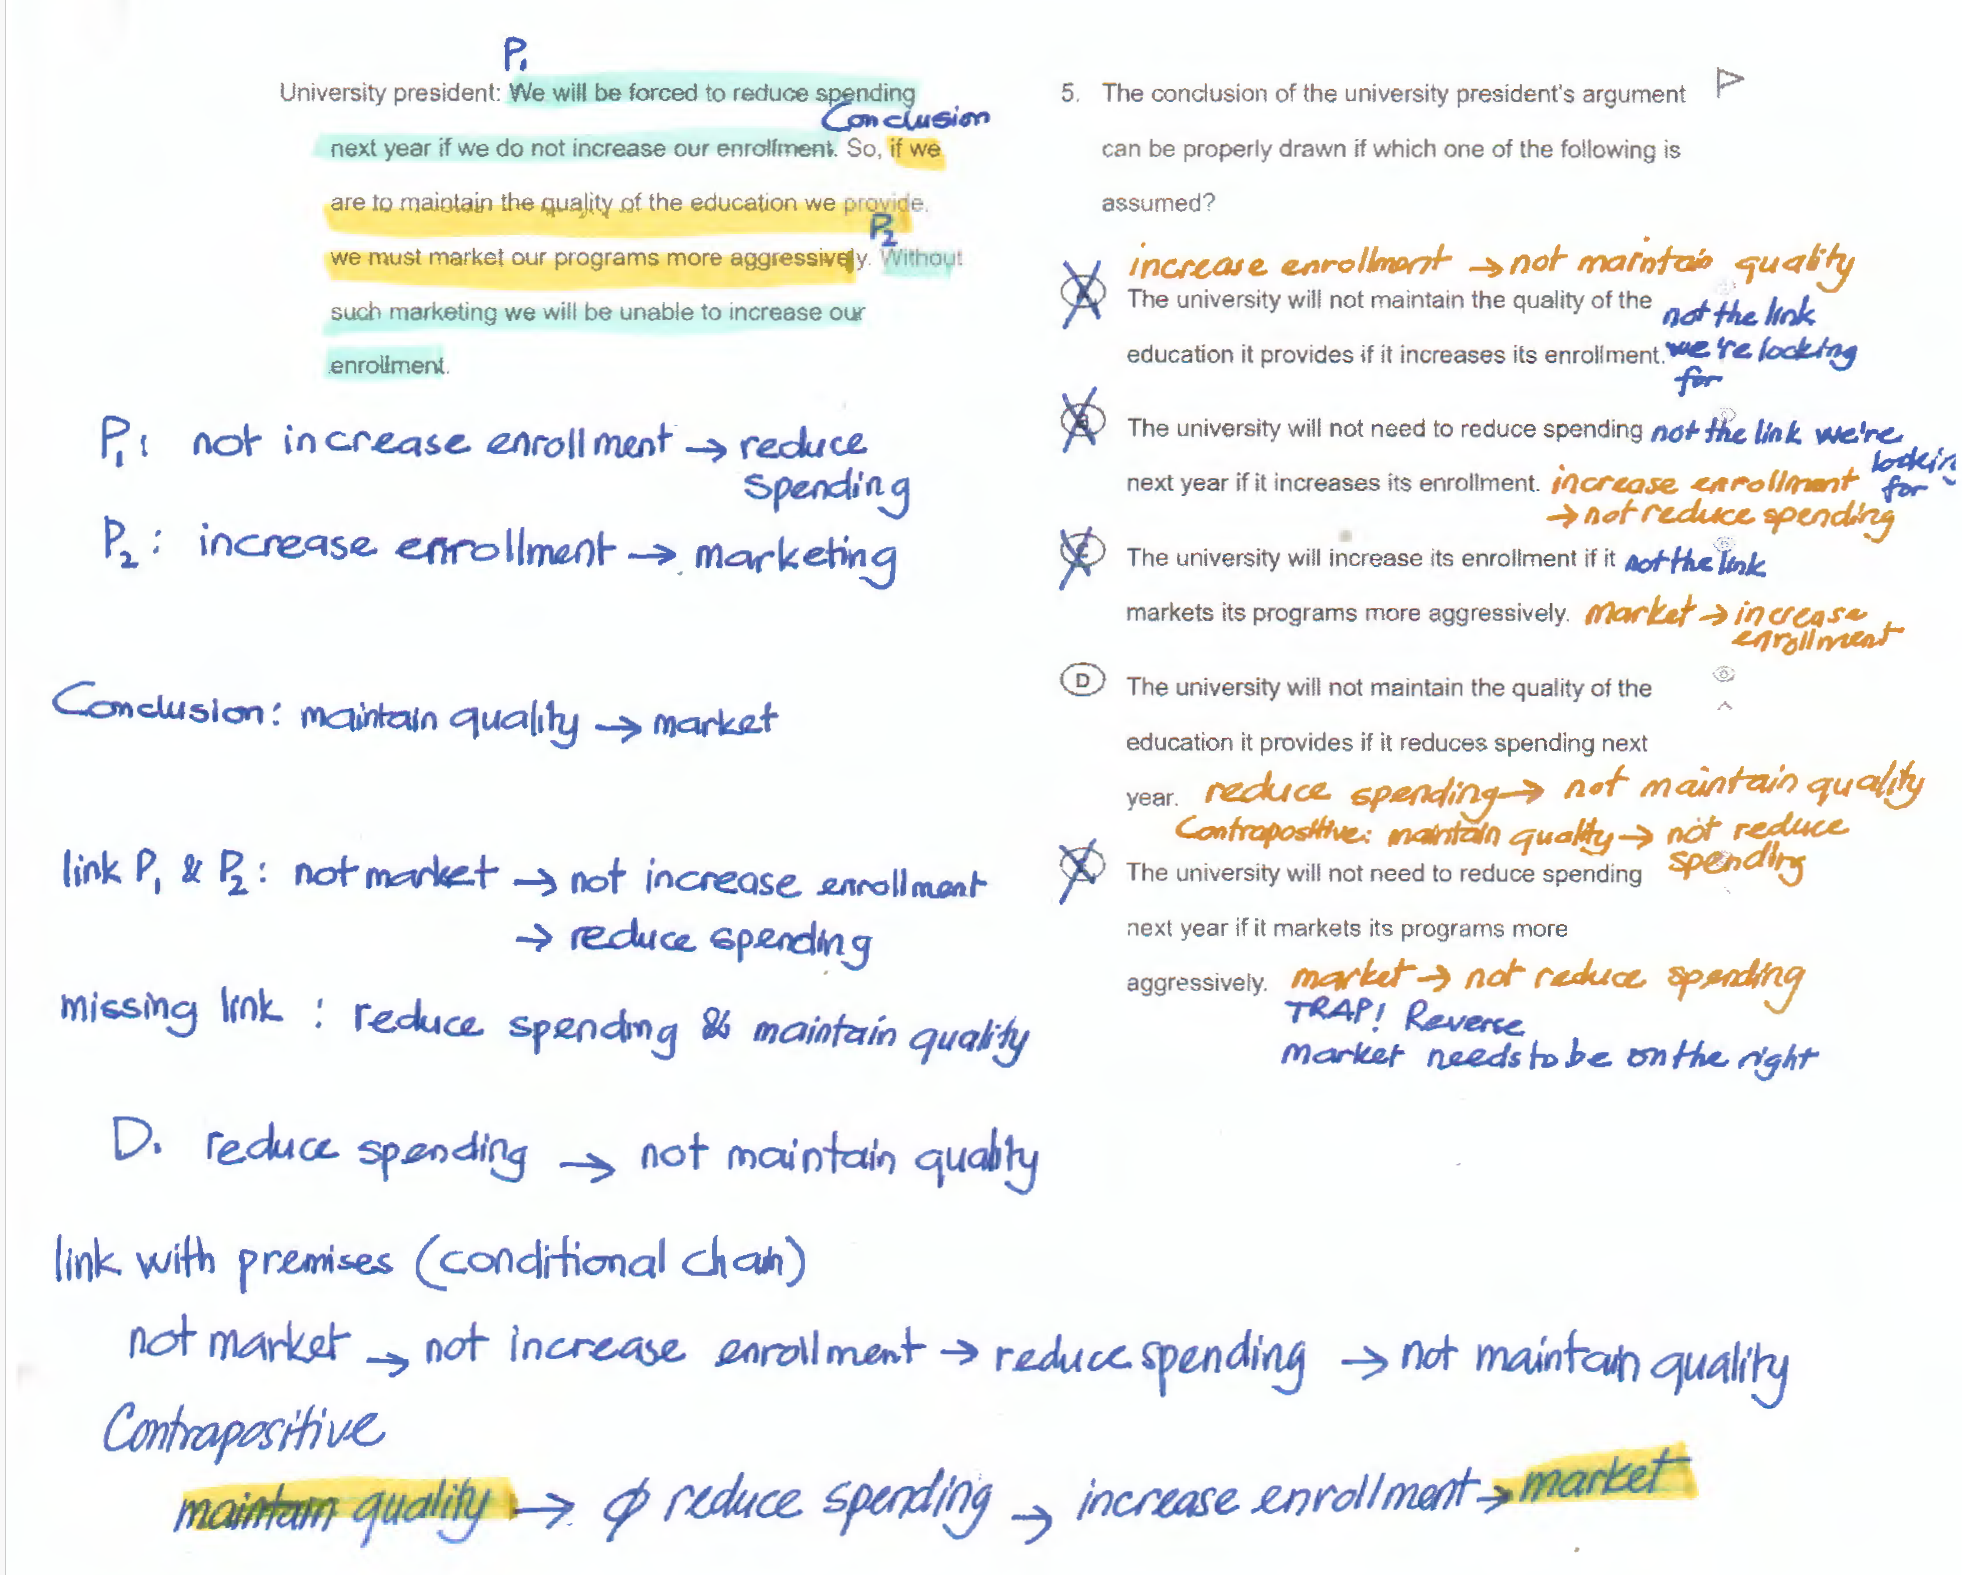 P1
University president: We will be forced to reduce spending
Conclusion
next year if we do not increase our enrollment. So, if we
are to maintain the quality of the education we provide,
P2
we must market our programs more aggressively. Without
such marketing we will be unable to increase our
enrollment.
P1: not increase enrollment → reduce
spending
P2: increase enrollment → marketing
Conclusion: maintain quality → market
link P1 & P2: not market → not increase enrollment
→ reduce spending
missing link: reduce spending & maintain quality
D. reduce spending → not maintain quality
link with premises (conditional chain)
not market → not increase enrollment → reduce spending → not maintain quality
Contrapositive
maintain quality → ∅ reduce spending → increase enrollment → market
5. The conclusion of the university president's argument
can be properly drawn if which one of the following is
assumed?
increase enrollment → not maintain quality
The university will not maintain the quality of the
not the link
education it provides if it increases its enrollment. we're looking
for
The university will not need to reduce spending not the link we're
lookin
next year if it increases its enrollment. increase enrollment for
→ not reduce spending
The university will increase its enrollment if it not the link
markets its programs more aggressively. market → increase
enrollment
D The university will not maintain the quality of the
education it provides if it reduces spending next
year. reduce spending → not maintain quality
Contrapositive: maintain quality → not reduce
spending
The university will not need to reduce spending
next year if it markets its programs more
aggressively. market → not reduce spending
TRAP! Reverse
market needs to be on the right